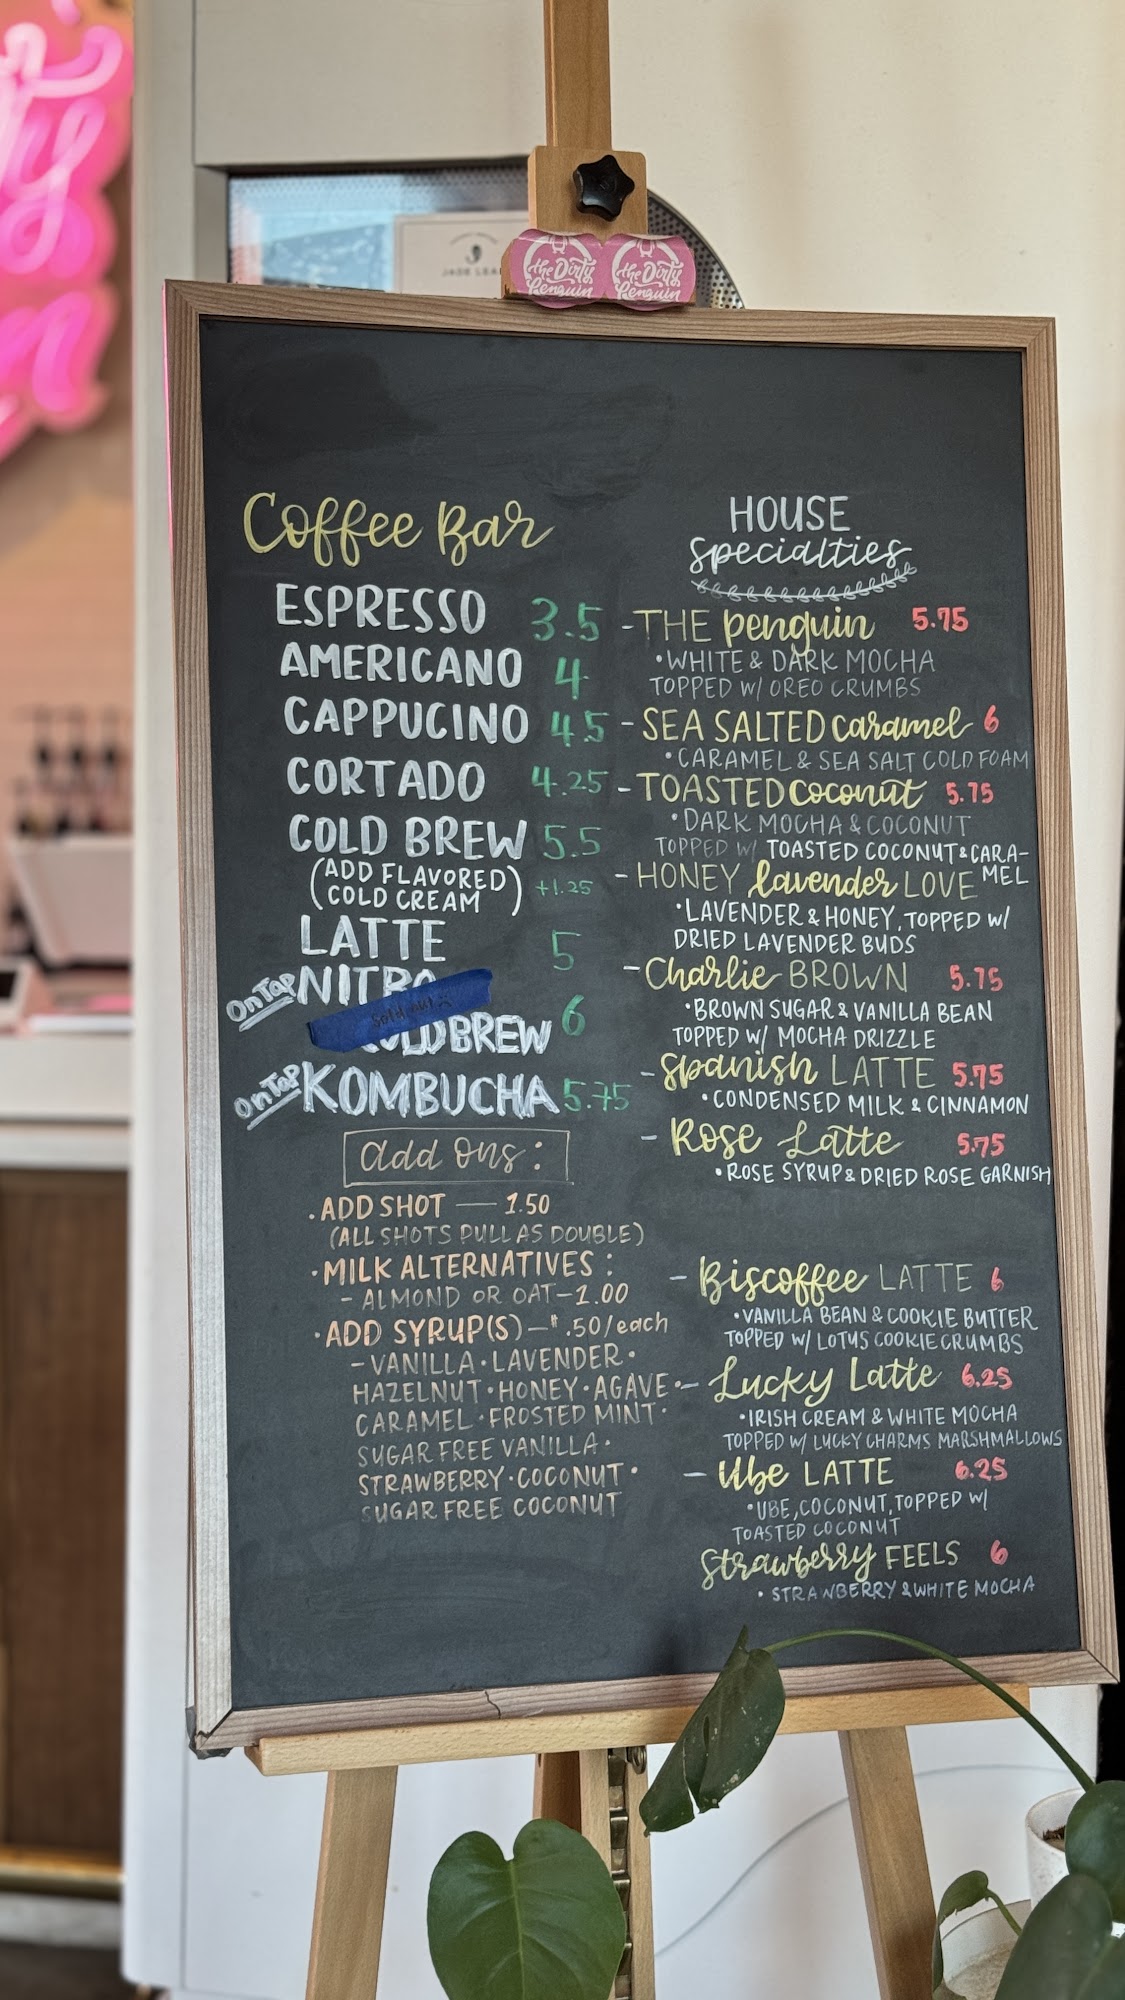 JADE LEA
the Dirty
Penguin
the Dirty
Penguin
Coffee Bar
ESPRESSO 3.5
AMERICANO 4
CAPPUCINO 4.5
CORTADO 4.25
COLD BREW 5.5
(ADD FLAVORED
COLD CREAM) +1.25
LATTE 5
On Tap NITRO
sold out :(
COLDBREW 6
On Tap KOMBUCHA 5.75
add ons:
· ADD SHOT — 1.50
(ALL SHOTS PULL AS DOUBLE)
· MILK ALTERNATIVES :
- ALMOND OR OAT - 1.00
· ADD SYRUP(S) - $ .50/each
- VANILLA · LAVENDER ·
HAZELNUT · HONEY · AGAVE ·
CARAMEL · FROSTED MINT ·
SUGAR FREE VANILLA ·
STRAWBERRY · COCONUT ·
SUGAR FREE COCONUT
HOUSE
Specialties
- THE Penguin 5.75
· WHITE & DARK MOCHA
TOPPED W/ OREO CRUMBS
- SEA SALTED Caramel 6
· CARAMEL & SEA SALT COLD FOAM
- TOASTED Coconut 5.75
· DARK MOCHA & COCONUT
TOPPED W/ TOASTED COCONUT & CARA-
MEL
- HONEY lavender LOVE
· LAVENDER & HONEY, TOPPED W/
DRIED LAVENDER BUDS
- Charlie BROWN 5.75
· BROWN SUGAR & VANILLA BEAN
TOPPED W/ MOCHA DRIZZLE
- Spanish LATTE 5.75
· CONDENSED MILK & CINNAMON
- Rose Latte 5.75
· ROSE SYRUP & DRIED ROSE GARNISH
- Biscoffee LATTE 6
· VANILLA BEAN & COOKIE BUTTER
TOPPED W/ LOTUS COOKIE CRUMBS
- Lucky Latte 6.25
· IRISH CREAM & WHITE MOCHA
TOPPED W/ LUCKY CHARMS MARSHMALLOWS
- Ube LATTE 6.25
· UBE, COCONUT, TOPPED W/
TOASTED COCONUT
Strawberry FEELS 6
· STRAWBERRY & WHITE MOCHA